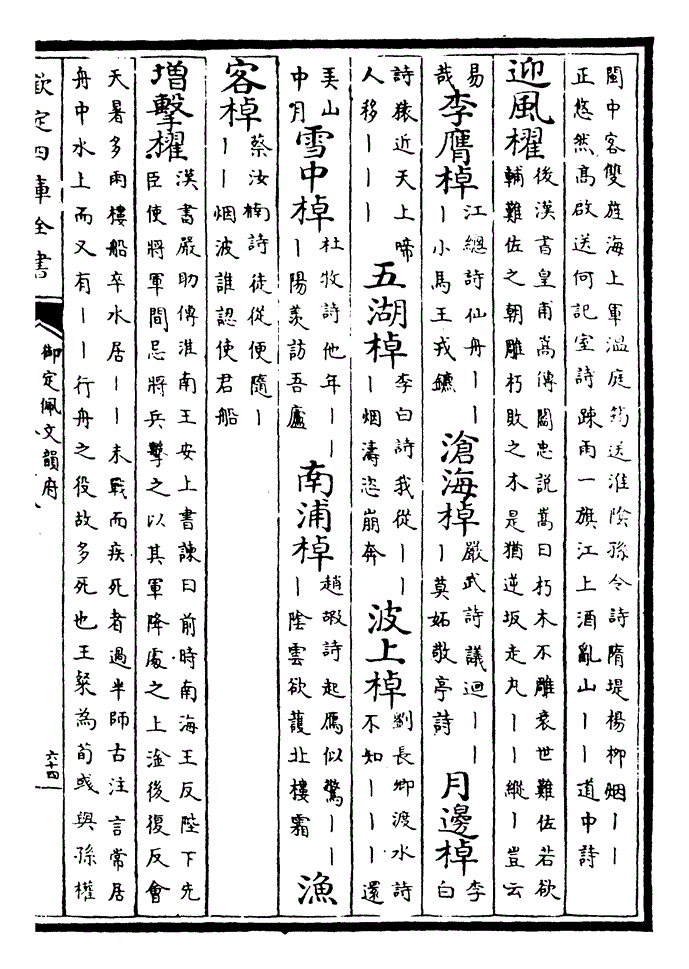 閩中客雙旌海上軍溫庭筠送淮陰孫令詩隋堤楊柳烟丨丨
正悠然高啟送何記室詩踈雨一旗江上酒亂山丨丨道中詩
迎風櫂
後漢書皇甫嵩傳閻忠說嵩曰朽木不雕衰世難佐若欲
輔難佐之朝雕朽敗之木是猶逆坂走丸丨丨縱丨豈云
易
哉
李膺棹
江總詩仙舟丨丨
丨小馬王戎鑣
滄海棹
嚴武詩議迴丨丨
丨莫妬敬亭詩
月邊棹
李
白
詩猿近天上啼
人移丨丨丨
五湖棹
李白詩我從丨丨
丨烟濤恣崩奔
波上棹
劉長卿渡水詩
不知丨丨丨還
美山
中月
雪中棹
杜牧詩他年丨丨
丨陽羨訪吾廬
南浦棹
趙嘏詩起鴈似驚丨丨
丨陰雲欲護北樓霜
漁
客棹
蔡汝楠詩徒從便隨丨
丨丨烟波誰認使君船
増擊櫂
漢書嚴助傳淮南王安上書諫曰前時南海王反陛下先
臣使將軍間忌將兵擊之以其軍降處之上淦後復反會
天暑多雨樓船卒水居丨丨未戰而疾死者過半師古注言常居
舟中水上而又有丨丨行舟之役故多死也王粲為荀彧與孫權
欽定四庫全書
御定佩文韻府
六十四